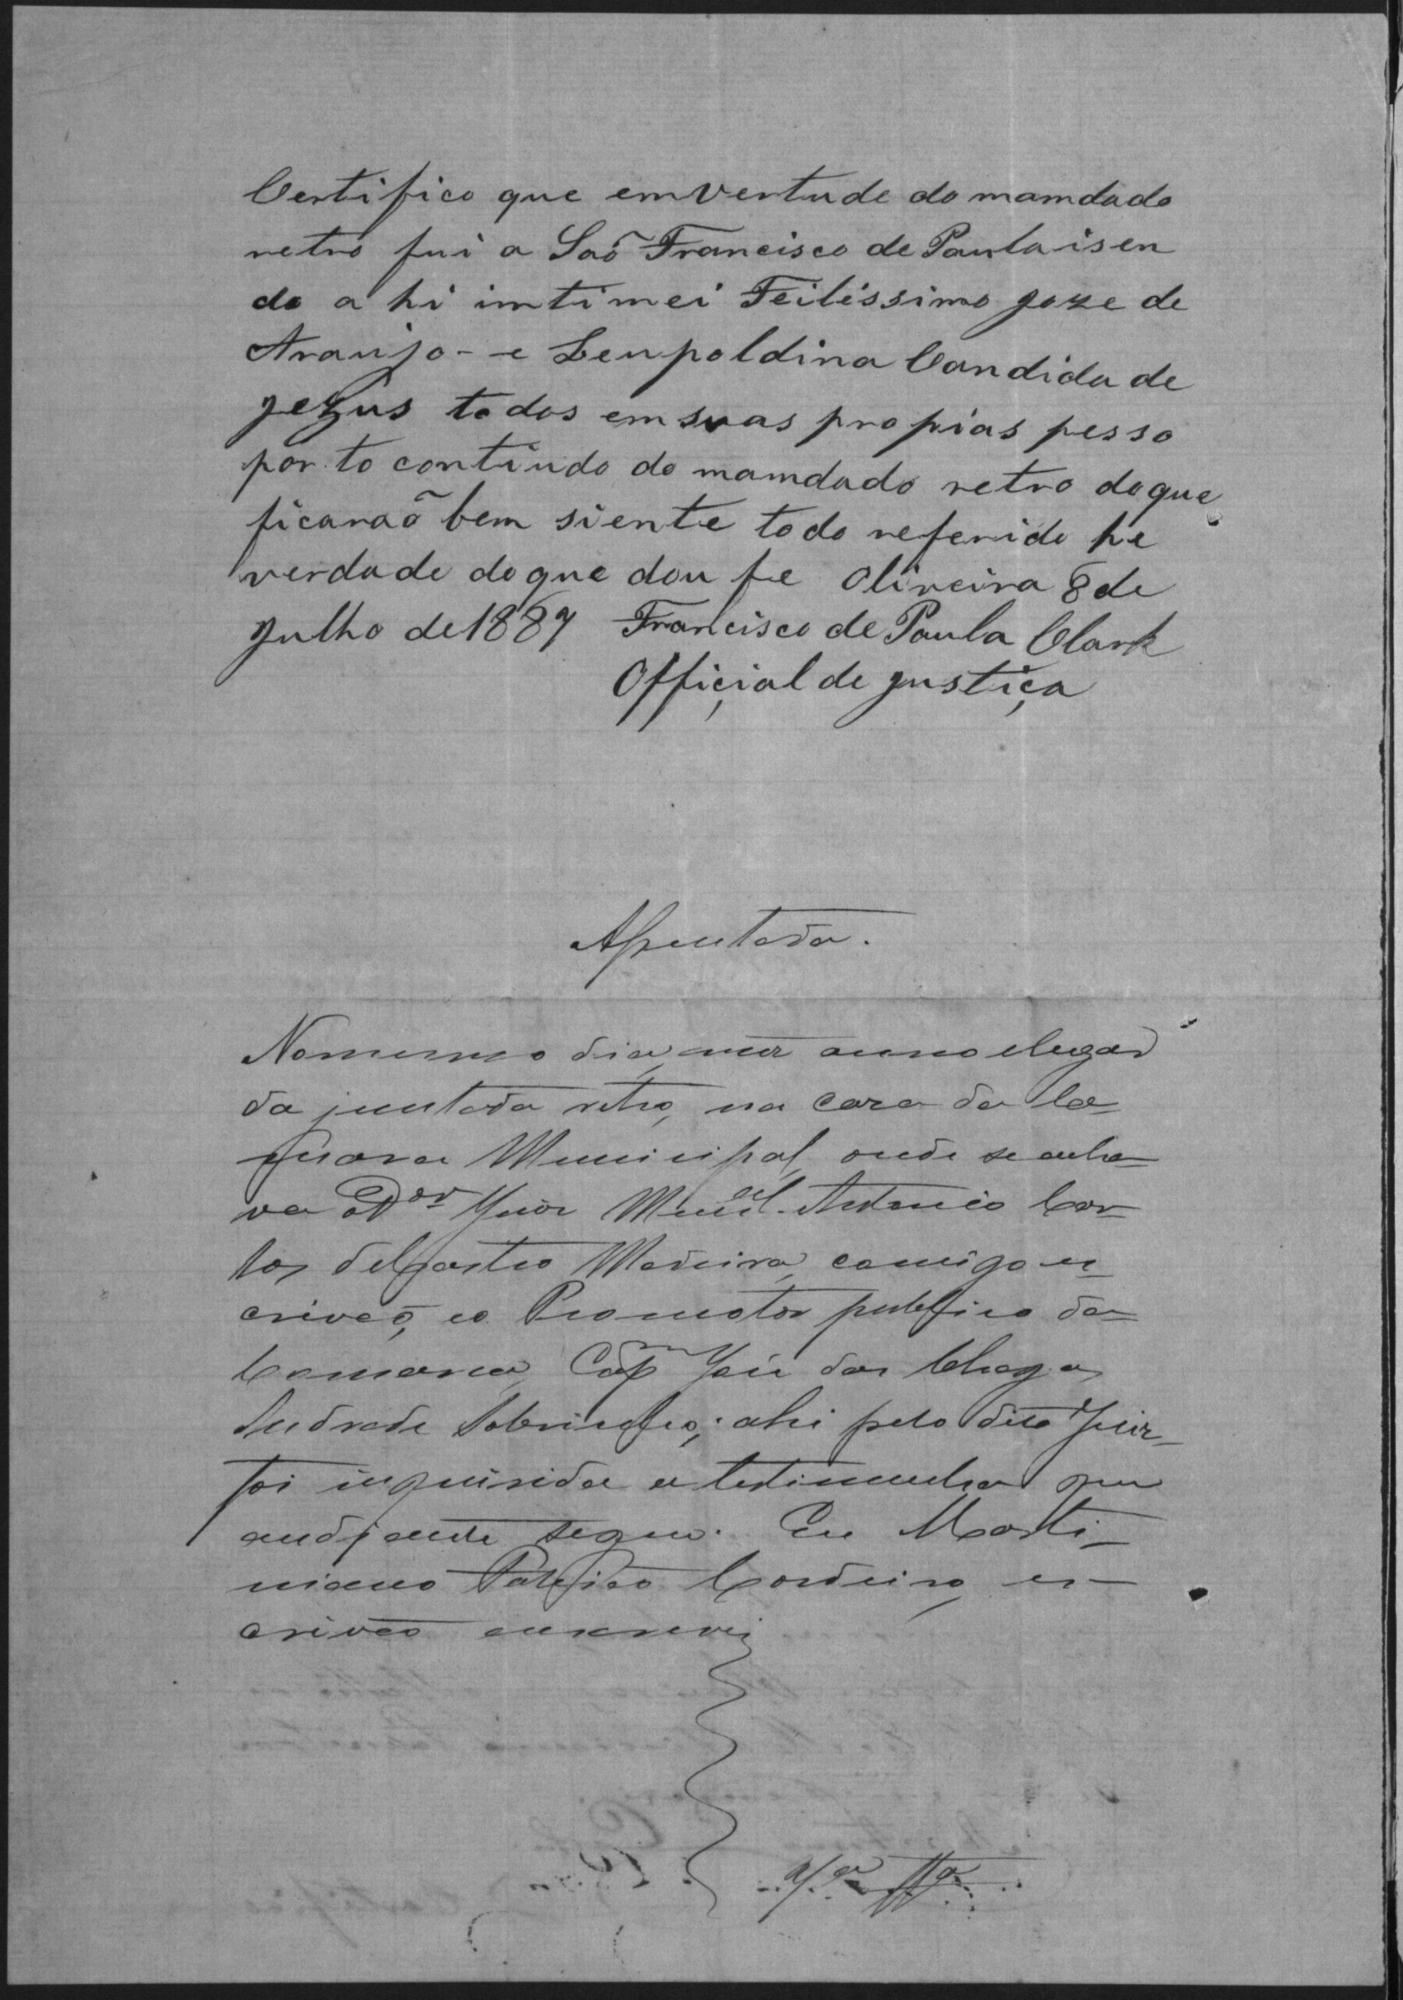 Certifico que em vertude do mamdado
retro fui a Saõ Francisco de Paula i sen
do a hi imtimei Feilissimo Joze de
Araujo - e Leupoldina Candida de
Jezus todos em suas propias pesso
por to contiudo do mamdado retro do que
ficaraõ bem siente todo referido he
verdade do que dou fe Oliveira 8 de
Julho de 1887 Francisco de Paula Clark
Offiçial de justiça
Assentada.
No mesmo dia, mez anno e lugar
da juntada retro, na caza da Ca-
mara Municipal, onde se acha-
va o Dor Juiz Munal. Antonio Car-
los de Castro Madeira, comigo es-
crivão, e o Promotor publico da
Comarca, Capm José das Chagas
Andrade Sobrinho; ahi pelo dito Juiz
foi inquirida a testimunha que
audiante segue. Eu Marti-
niano Publico Cordeiro, es-
crivão escrevi